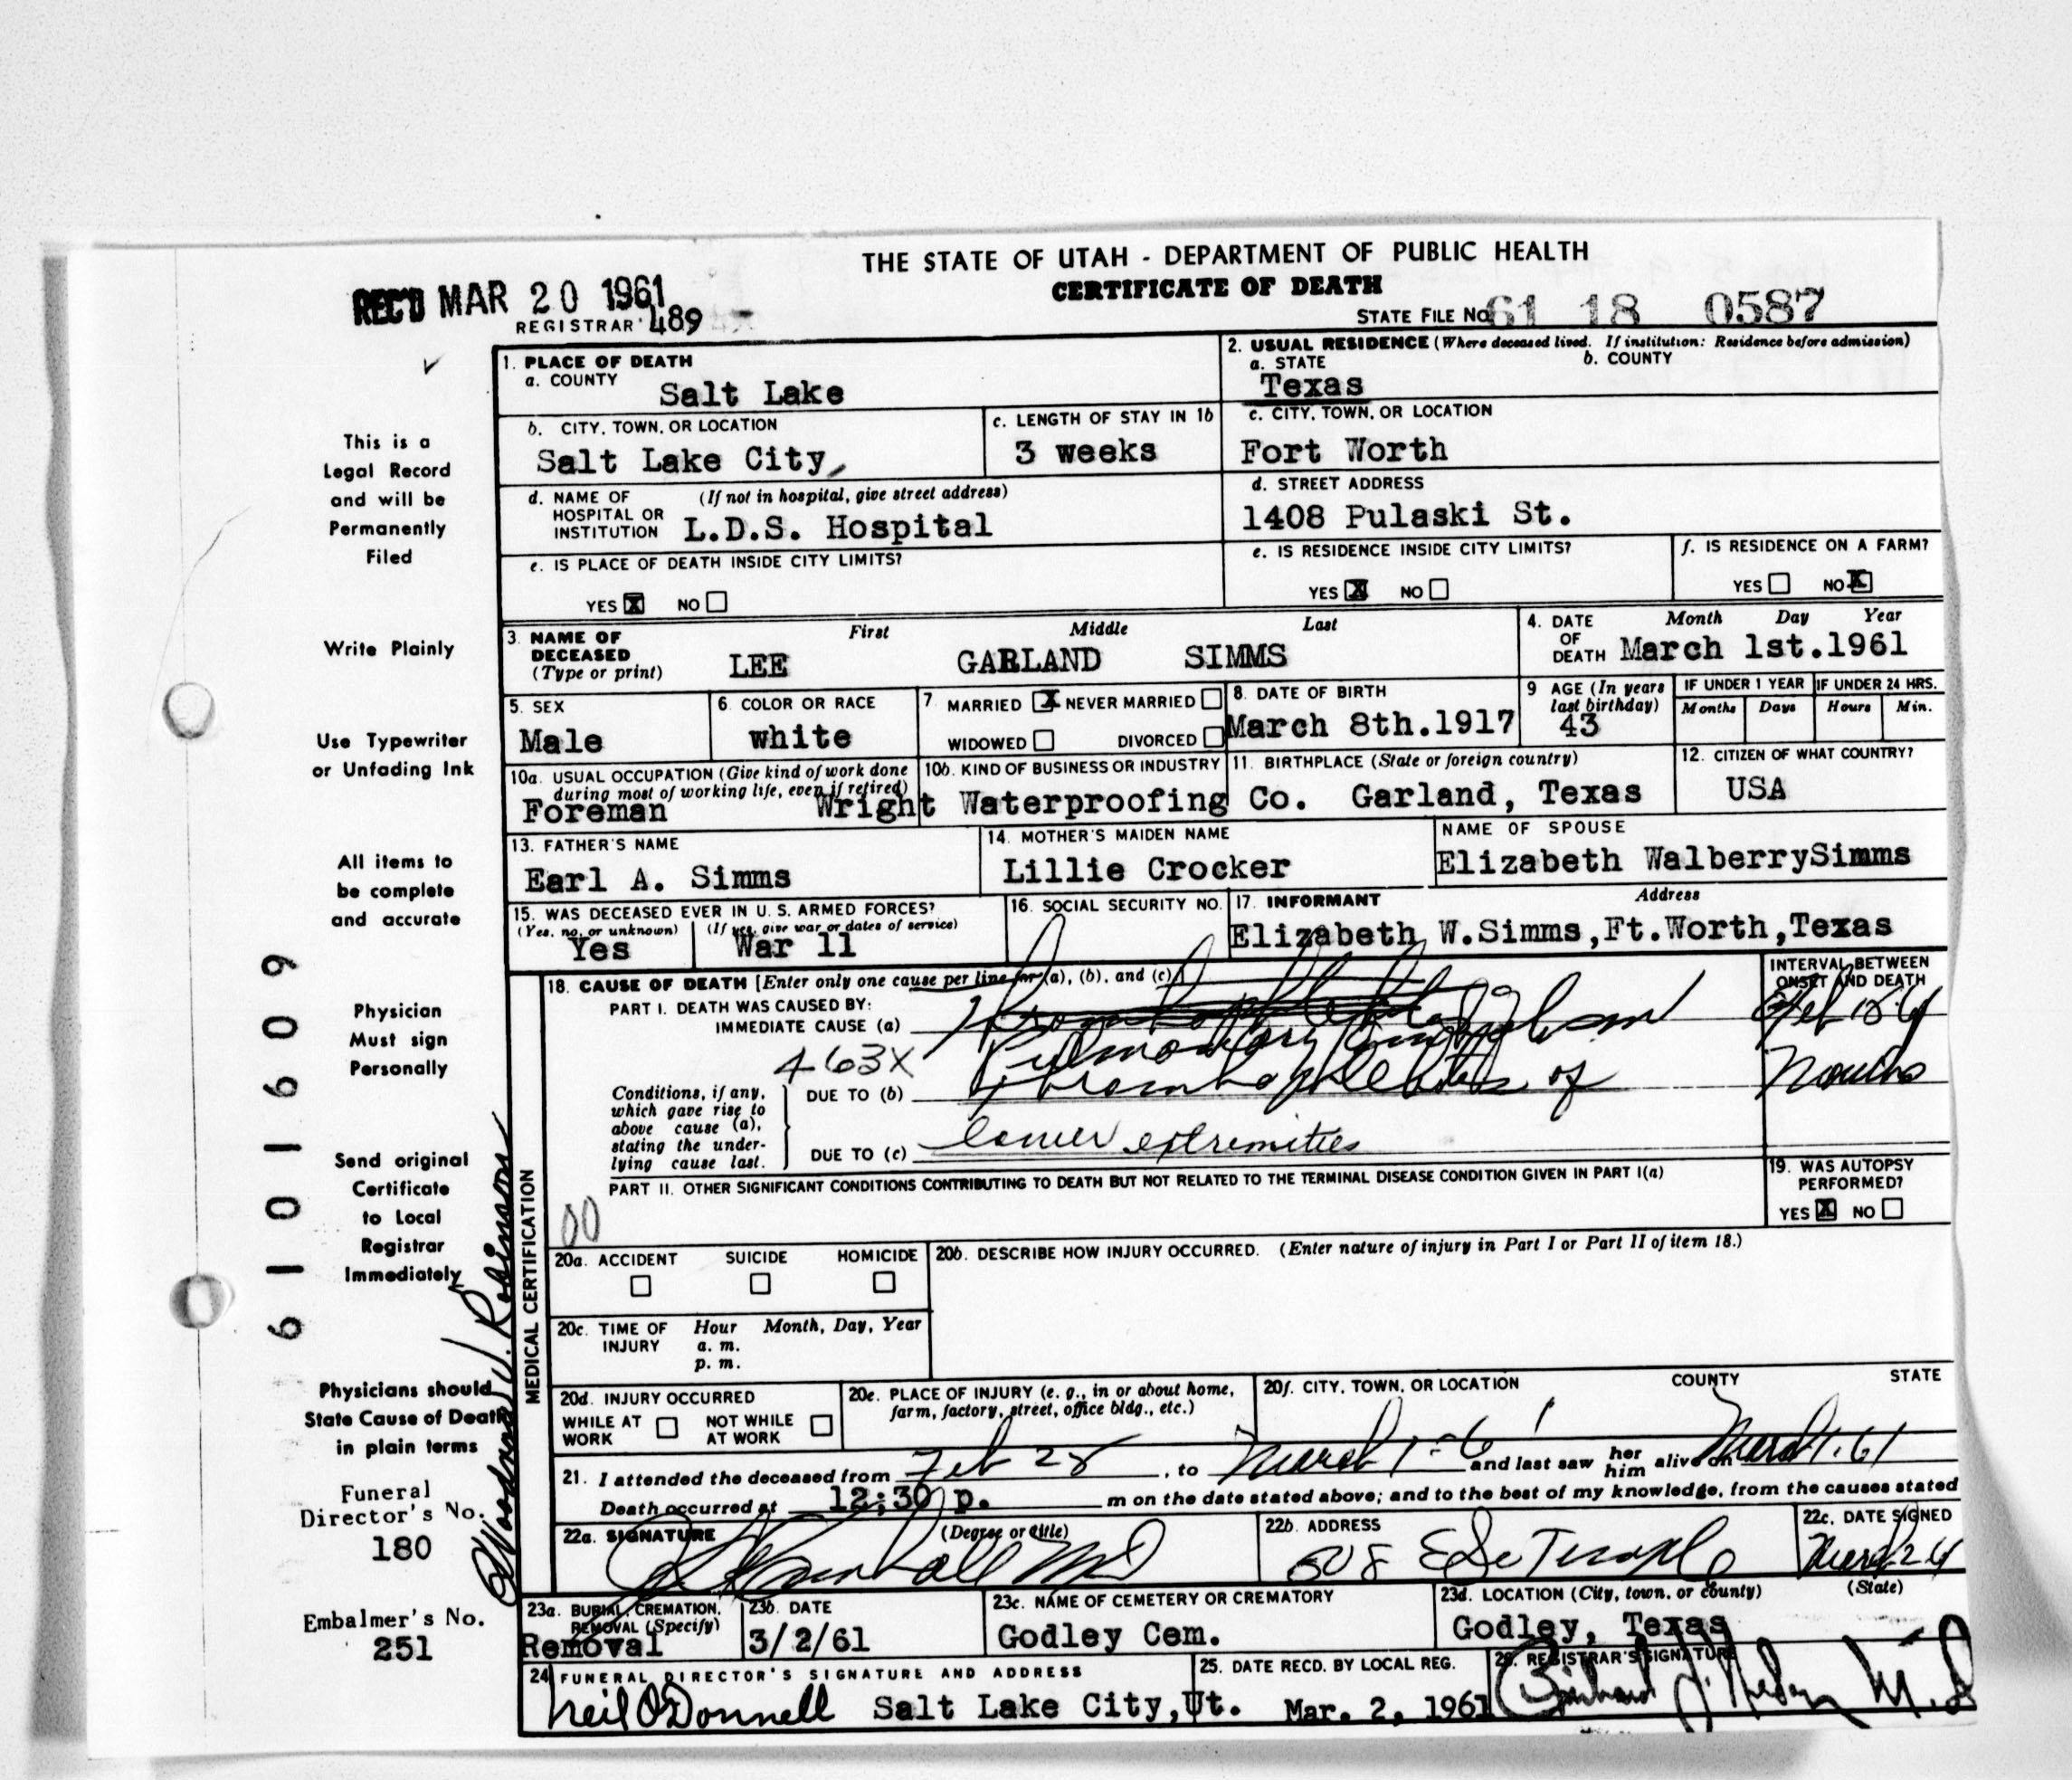 THE STATE OF UTAH - DEPARTMENT OF PUBLIC HEALTH
CERTIFICATE OF DEATH
REC'D MAR 20 1961
REGISTRAR 489
STATE FILE No. 61 18 0587
1. PLACE OF DEATH
a. COUNTY Salt Lake
2. USUAL RESIDENCE (Where deceased lived. If institution: Residence before admission)
a. STATE b. COUNTY
Texas
b. CITY, TOWN, OR LOCATION
Salt Lake City,
c. LENGTH OF STAY IN 1b
3 weeks
c. CITY, TOWN, OR LOCATION
Fort Worth
d. NAME OF HOSPITAL OR INSTITUTION (If not in hospital, give street address)
L.D.S. Hospital
d. STREET ADDRESS
1408 Pulaski St.
e. IS PLACE OF DEATH INSIDE CITY LIMITS?
YES X NO
e. IS RESIDENCE INSIDE CITY LIMITS?
YES X NO
f. IS RESIDENCE ON A FARM?
YES NO X
3. NAME OF DECEASED (Type or print)
First Middle Last
LEE GARLAND SIMMS
4. DATE OF DEATH Month Day Year
March 1st.1961
5. SEX
Male
6. COLOR OR RACE
white
7. MARRIED X NEVER MARRIED
WIDOWED DIVORCED
8. DATE OF BIRTH
March 8th.1917
9 AGE (In years last birthday)
43
IF UNDER 1 YEAR IF UNDER 24 HRS.
Months Days Hours Min.
10a. USUAL OCCUPATION (Give kind of work done during most of working life, even if retired)
Foreman
10b. KIND OF BUSINESS OR INDUSTRY
Wright Waterproofing Co.
11. BIRTHPLACE (State or foreign country)
Garland, Texas
12. CITIZEN OF WHAT COUNTRY?
USA
13. FATHER'S NAME
Earl A. Simms
14. MOTHER'S MAIDEN NAME
Lillie Crocker
NAME OF SPOUSE
Elizabeth WalberrySimms
15. WAS DECEASED EVER IN U. S. ARMED FORCES?
(Yes, no, or unknown) (If yes, give war or dates of service)
Yes War 11
16. SOCIAL SECURITY NO.
17. INFORMANT Address
Elizabeth W.Simms,Ft.Worth,Texas
18. CAUSE OF DEATH [Enter only one cause per line for (a), (b), and (c)]
INTERVAL BETWEEN ONSET AND DEATH
PART I. DEATH WAS CAUSED BY:
IMMEDIATE CAUSE (a)
Pulmonary
463X
Conditions, if any, which gave rise to above cause (a), stating the underlying cause last.
DUE TO (b) Thrombophlebitis of
DUE TO (c) lower extremities
PART II. OTHER SIGNIFICANT CONDITIONS CONTRIBUTING TO DEATH BUT NOT RELATED TO THE TERMINAL DISEASE CONDITION GIVEN IN PART I(a)
00
19. WAS AUTOPSY PERFORMED?
YES X NO
20a. ACCIDENT SUICIDE HOMICIDE
20b. DESCRIBE HOW INJURY OCCURRED. (Enter nature of injury in Part I or Part II of item 18.)
20c. TIME OF INJURY Hour Month, Day, Year
a. m.
p. m.
20d. INJURY OCCURRED
WHILE AT WORK NOT WHILE AT WORK
20e. PLACE OF INJURY (e. g., in or about home, farm, factory, street, office bldg., etc.)
20f. CITY, TOWN, OR LOCATION COUNTY STATE
21. I attended the deceased from Feb 28, to March 1-61 and last saw her him alive on March 1.61
Death occurred at 12:30 p. m on the date stated above; and to the best of my knowledge, from the causes stated
22a. SIGNATURE (Degree or title)
22b. ADDRESS
508 E So Temple
22c. DATE SIGNED
23a. BURIAL, CREMATION, REMOVAL (Specify)
Removal
23b. DATE
3/2/61
23c. NAME OF CEMETERY OR CREMATORY
Godley Cem.
23d. LOCATION (City, town, or county) (State)
Godley, Texas
24 FUNERAL DIRECTOR'S SIGNATURE AND ADDRESS
Neil O'Donnell Salt Lake City,Ut.
25. DATE RECD. BY LOCAL REG.
Mar. 2, 1961
26. REGISTRAR'S SIGNATURE
MEDICAL CERTIFICATION
This is a
Legal Record
and will be
Permanently
Filed
Write Plainly
Use Typewriter
or Unfading Ink
All items to
be complete
and accurate
Physician
Must sign
Personally
Send original
Certificate
to Local
Registrar
Immediately
Physicians should
State Cause of Death
in plain terms
Funeral
Director's No.
180
Embalmer's No.
251
6101609
Robinson